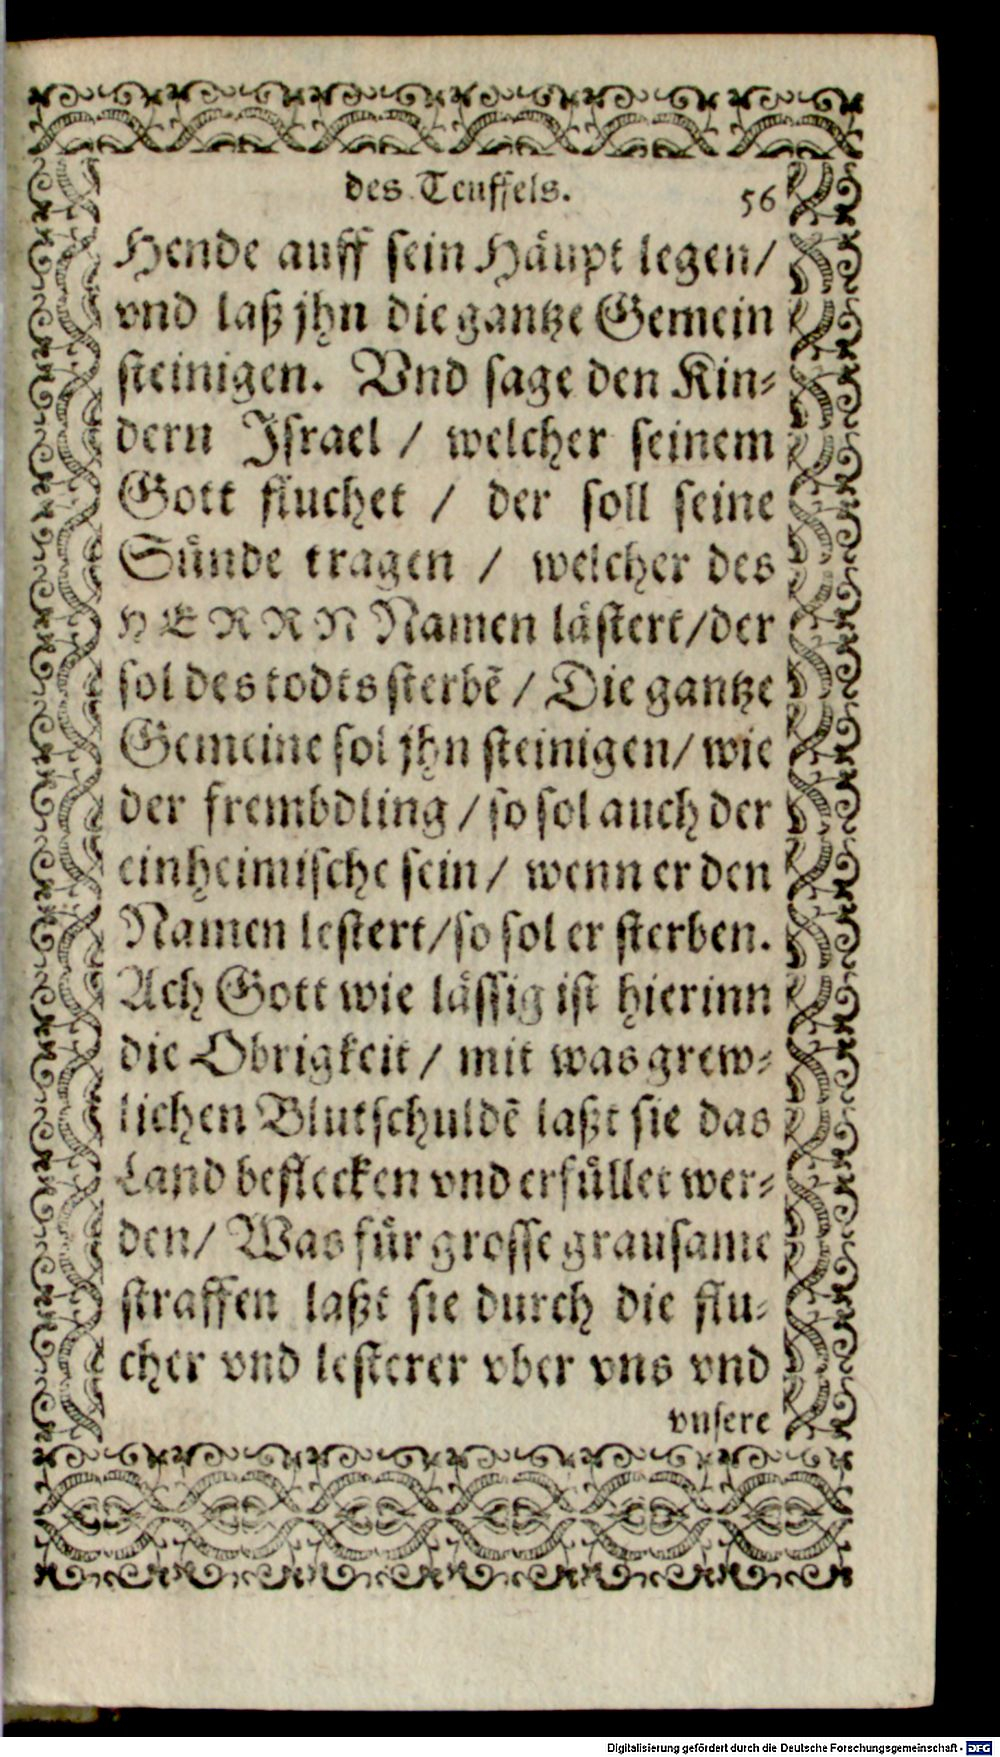 des Teuffels. 56
Hende auff sein Häupt legen/
vnd laß jhn die gantze Gemein
steinigen. Vnd sage den Kin⸗
dern Israel / welcher seinem
Gott fluchet / der soll seine
Sünde tragen / welcher des
HERRN Namen lästert/der
sol des todts sterbẽ / Die gantze
Gemeine sol jhn steinigen/ wie
der frembdling / so sol auch der
einheimische sein / wenn er den
Namen lestert/so sol er sterben.
Ach Gott wie lässig ist hierinn
die Obrigkeit / mit was grew⸗
lichen Blutschuldẽ laßt sie das
Land beflecken vnd erfüllet wer⸗
den/ Was für grosse grausame
straffen laßt sie durch die flu⸗
cher vnd lesterer vber vns vnd
vnsere
Digitalisierung gefördert durch die Deutsche Forschungsgemeinschaft - DFG